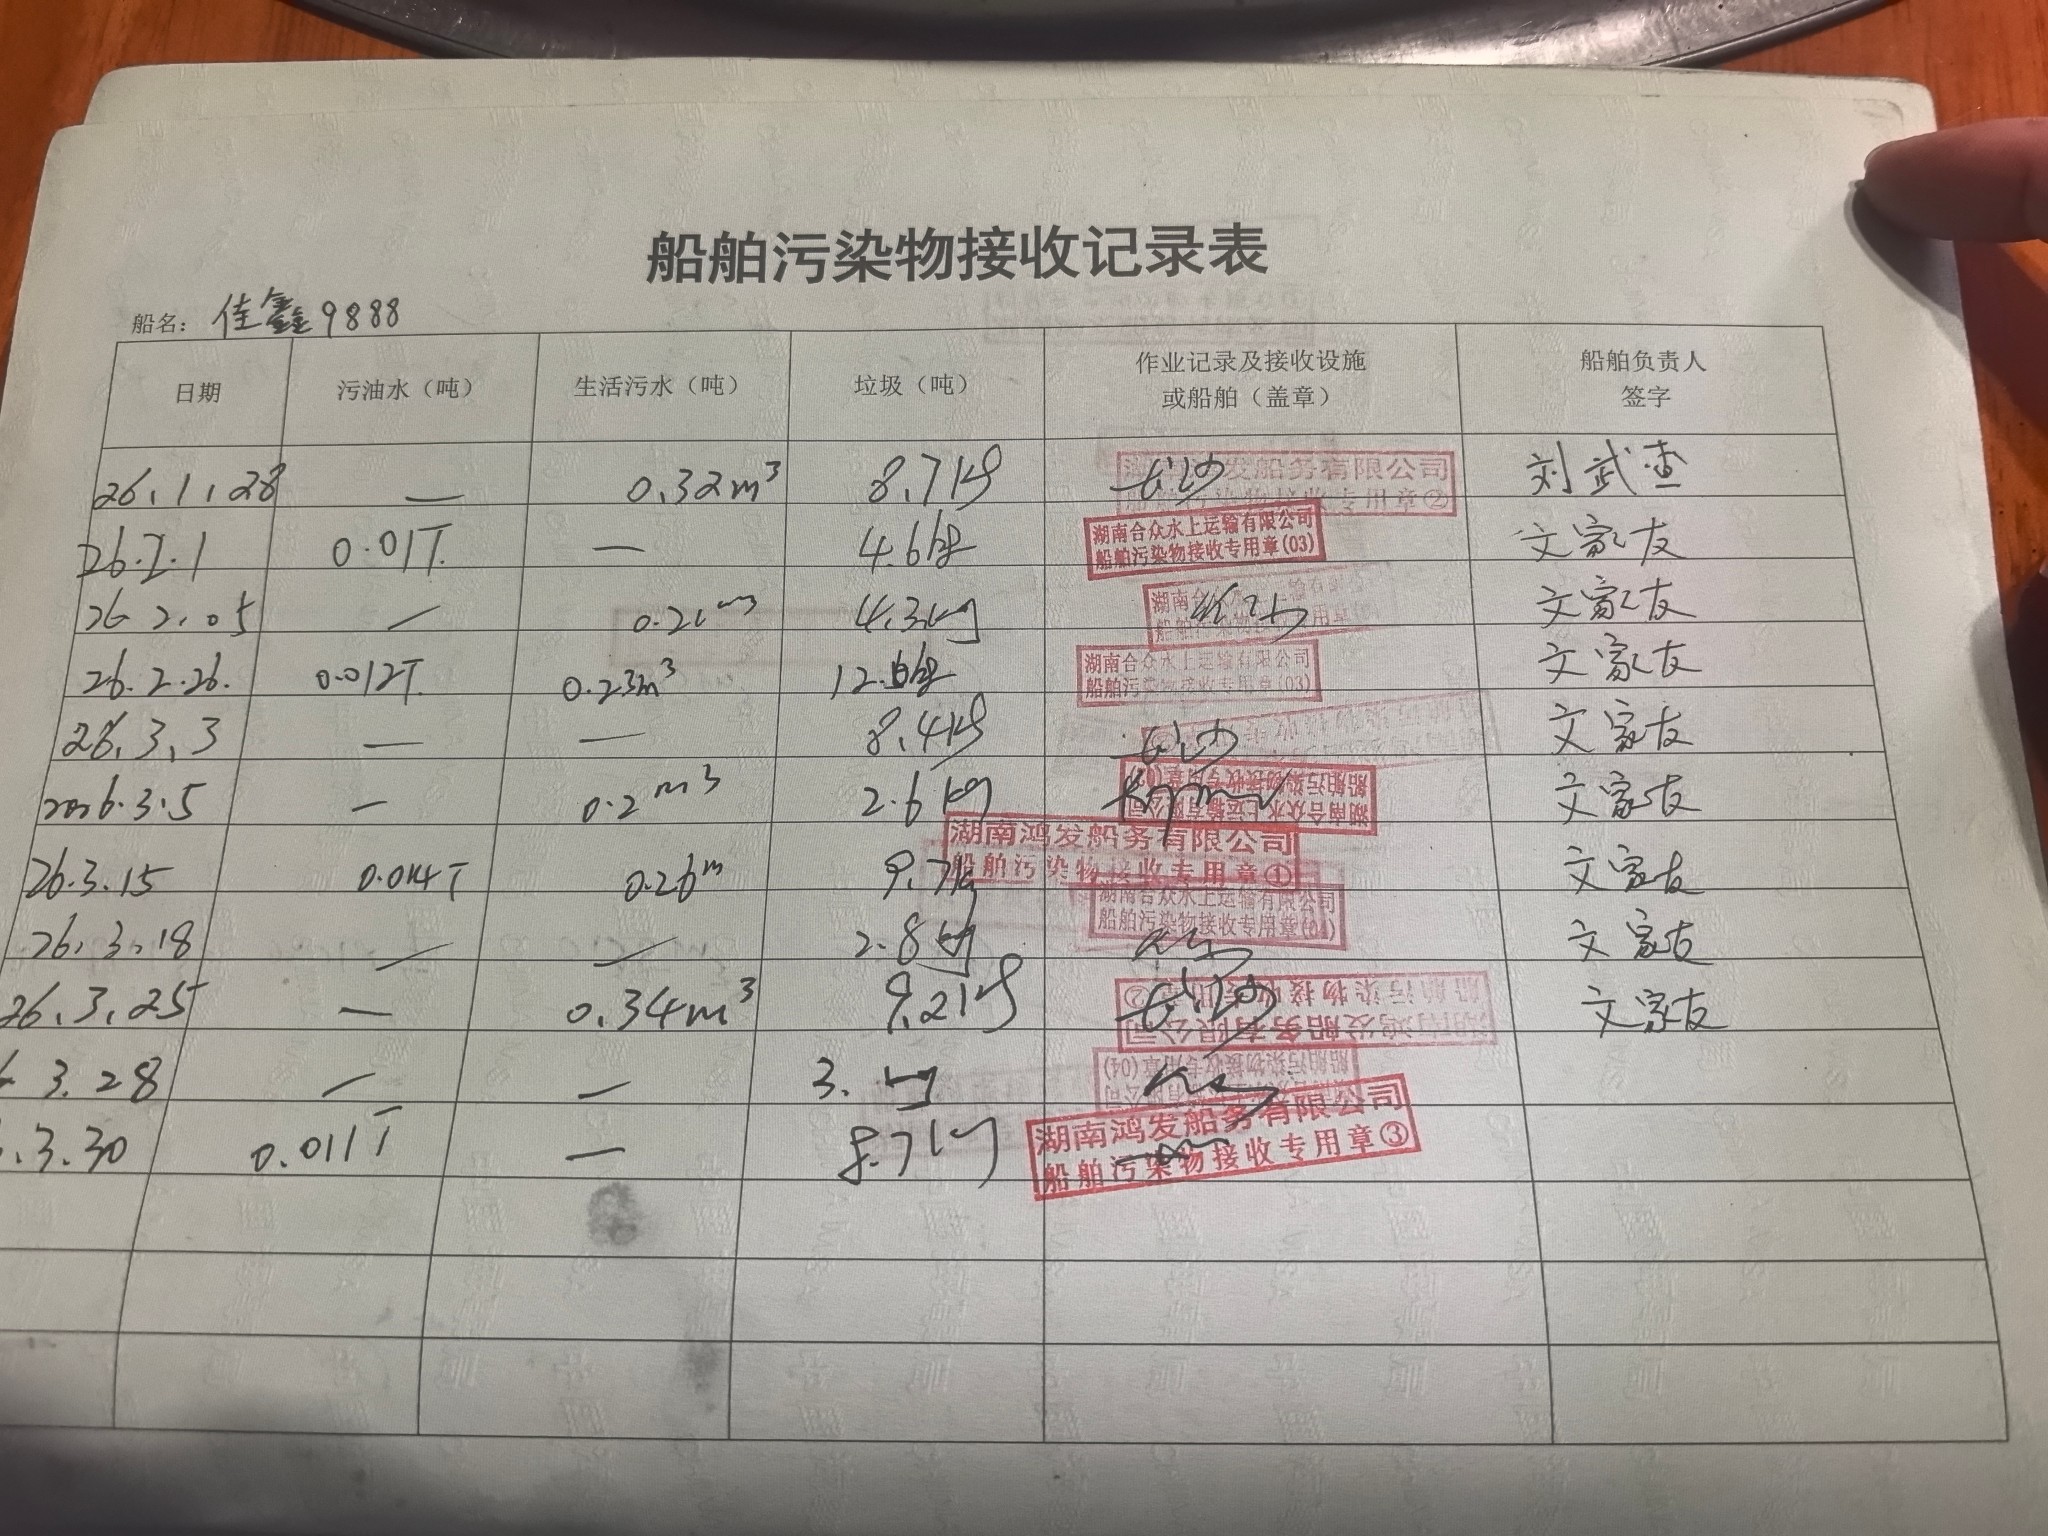 船舶污染物接收记录表
船名: 佳鑫9888
日期 污油水（吨） 生活污水（吨） 垃圾（吨） 作业记录及接收设施或船舶（盖章） 船舶负责人签字
26.1.28 — 0.32m³ 8.7kg 长沙 发船务有限公司 专用章② 刘武
26.2.1 0.01T. — 4.6kg 湖南合众水上运输有限公司 船舶污染物接收专用章(03) 文家友
26 2.05 — m³ 4.3kg 湖南合 船舶污染物接收专用章 文家友
26.2.26. 0.012T. 0.23m³ 12.6kg 湖南合众水上运输有限公司 船舶污染物接收专用章(03) 文家友
26.3.3 — — 8.4kg 长沙 文家友
2026.3.5 — 0.2m³ 2.6kg 湖南合众水上运输有限公司 船舶污染物接收专用章 文家友
26.3.15 0.014T 0.26m 9.7kg 湖南鸿发船务有限公司 船舶污染物接收专用章① 文家友
26.3.18 — — 2.8kg 湖南合众水上运输有限公司 船舶污染物接收专用章 文家友
26.3.25 — 0.34m³ 9.2kg 长沙 湖南鸿发船务有限公司 船舶污染物接收专用章② 文家友
3.28 — — 3. kg 船舶污染物接收专用章(04)
.3.30 0.011T — 8.7kg 湖南鸿发船务有限公司 船舶污染物接收专用章③